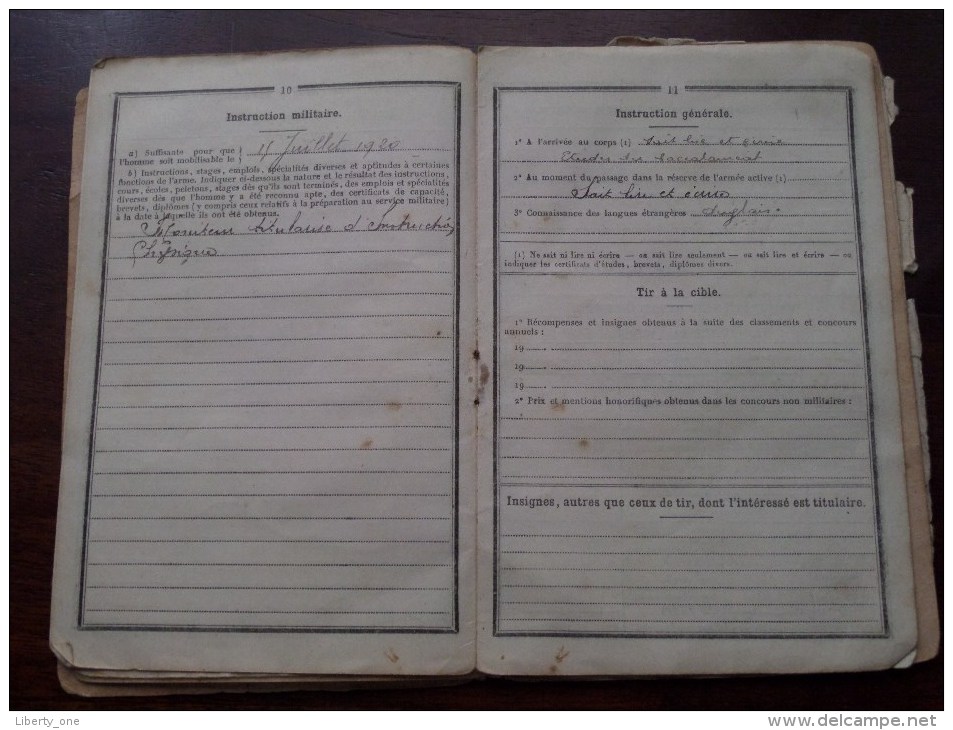 10
Instruction militaire.
a) Suffisante pour que
l'homme soit mobilisable le 15 Juillet 1920
b) Instructions, stages, emplois, spécialités diverses et aptitudes à certaines
fonctions de l'arme. Indiquer ci-dessous la nature et le résultat des instructions,
cours, écoles, pelotons, stages dès qu'ils sont terminés, des emplois et spécialités
diverses dès que l'homme y a été reconnu apte, des certificats de capacité,
brevets, diplômes (y compris ceux relatifs à la préparation au service militaire)
à la date à laquelle ils ont été obtenus.
Moniteur titularisé d'Instruction
Physique
11
Instruction générale.
1° A l'arrivée au corps (1) Sait lire et écrire
Etudes du baccalauréat
2° Au moment du passage dans la réserve de l'armée active (1)
Sait lire et écrire
3° Connaissance des langues étrangères Anglais.
(1) Ne sait ni lire ni écrire — ou sait lire seulement — ou sait lire et écrire — ou
indiquer les certificats d'études, brevets, diplômes divers.
Tir à la cible.
1° Récompenses et insignes obtenus à la suite des classements et concours
annuels :
19
19
19
2° Prix et mentions honorifiques obtenus dans les concours non militaires :
Insignes, autres que ceux de tir, dont l'intéressé est titulaire.
Liberty_one
www.delcampe.net